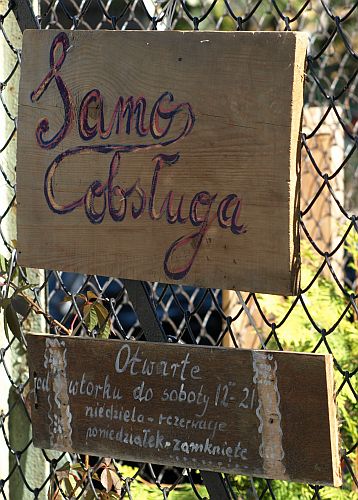 Samo
obsługa
Otwarte
od wtorku do soboty 12-21
niedziela - rezerwacje
poniedziałek - zamknięte